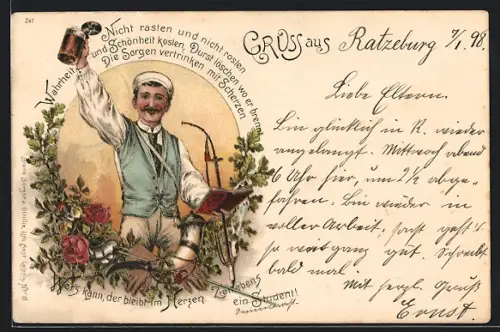 241
Nicht rasten und nicht rosten
Wahrheit und Schönheit kosten, Durst löschen wo er brennt,
Die Sorgen vertrinken mit Scherzen
Wer's kann, der bleibt im Herzen Zeitlebens
ein Student!
GRUSS aus Ratzeburg 7/1. 98.
Liebe Eltern.
Bin glücklich in R. wieder
angelangt. Mittwoch abend
6 Uhr hier, um 2 1/2 abge-
fahren. Bin wieder in
voller Arbeit, sonst geht's
so ganz gut. Schreibt
bald mal.
Mit herzl. Gruß
Ernst.